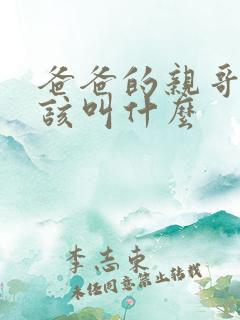 爸爸的親哥
該叫什麼
李志東
未经同意禁止转载